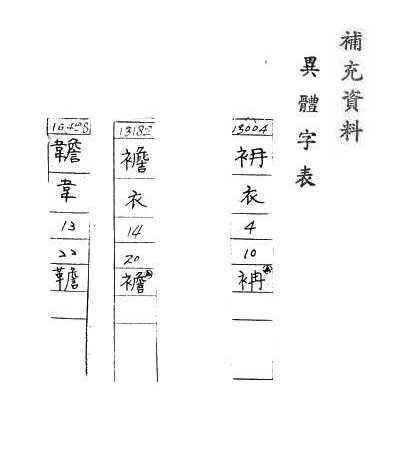 補充資料
異體字表
13004
衻
衣
4
10
袡
1318
襜
衣
14
20
襜
韂
韋
13
22
韂